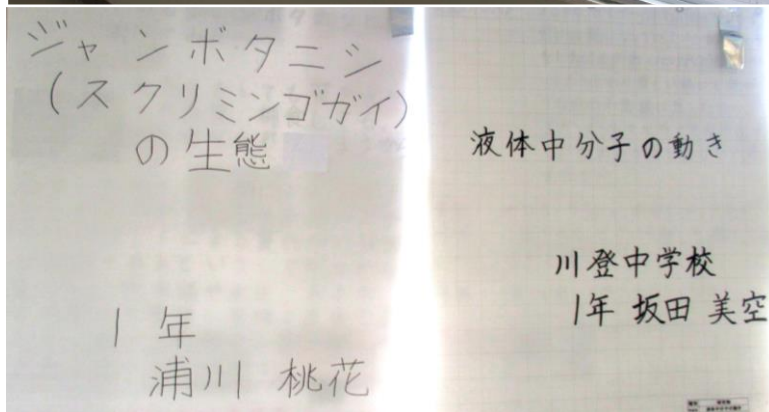 ジャンボタニシ
(スクリミンゴガイ)
の生態
1年
浦川 桃花
液体中分子の動き
川登中学校
1年 坂田 美空